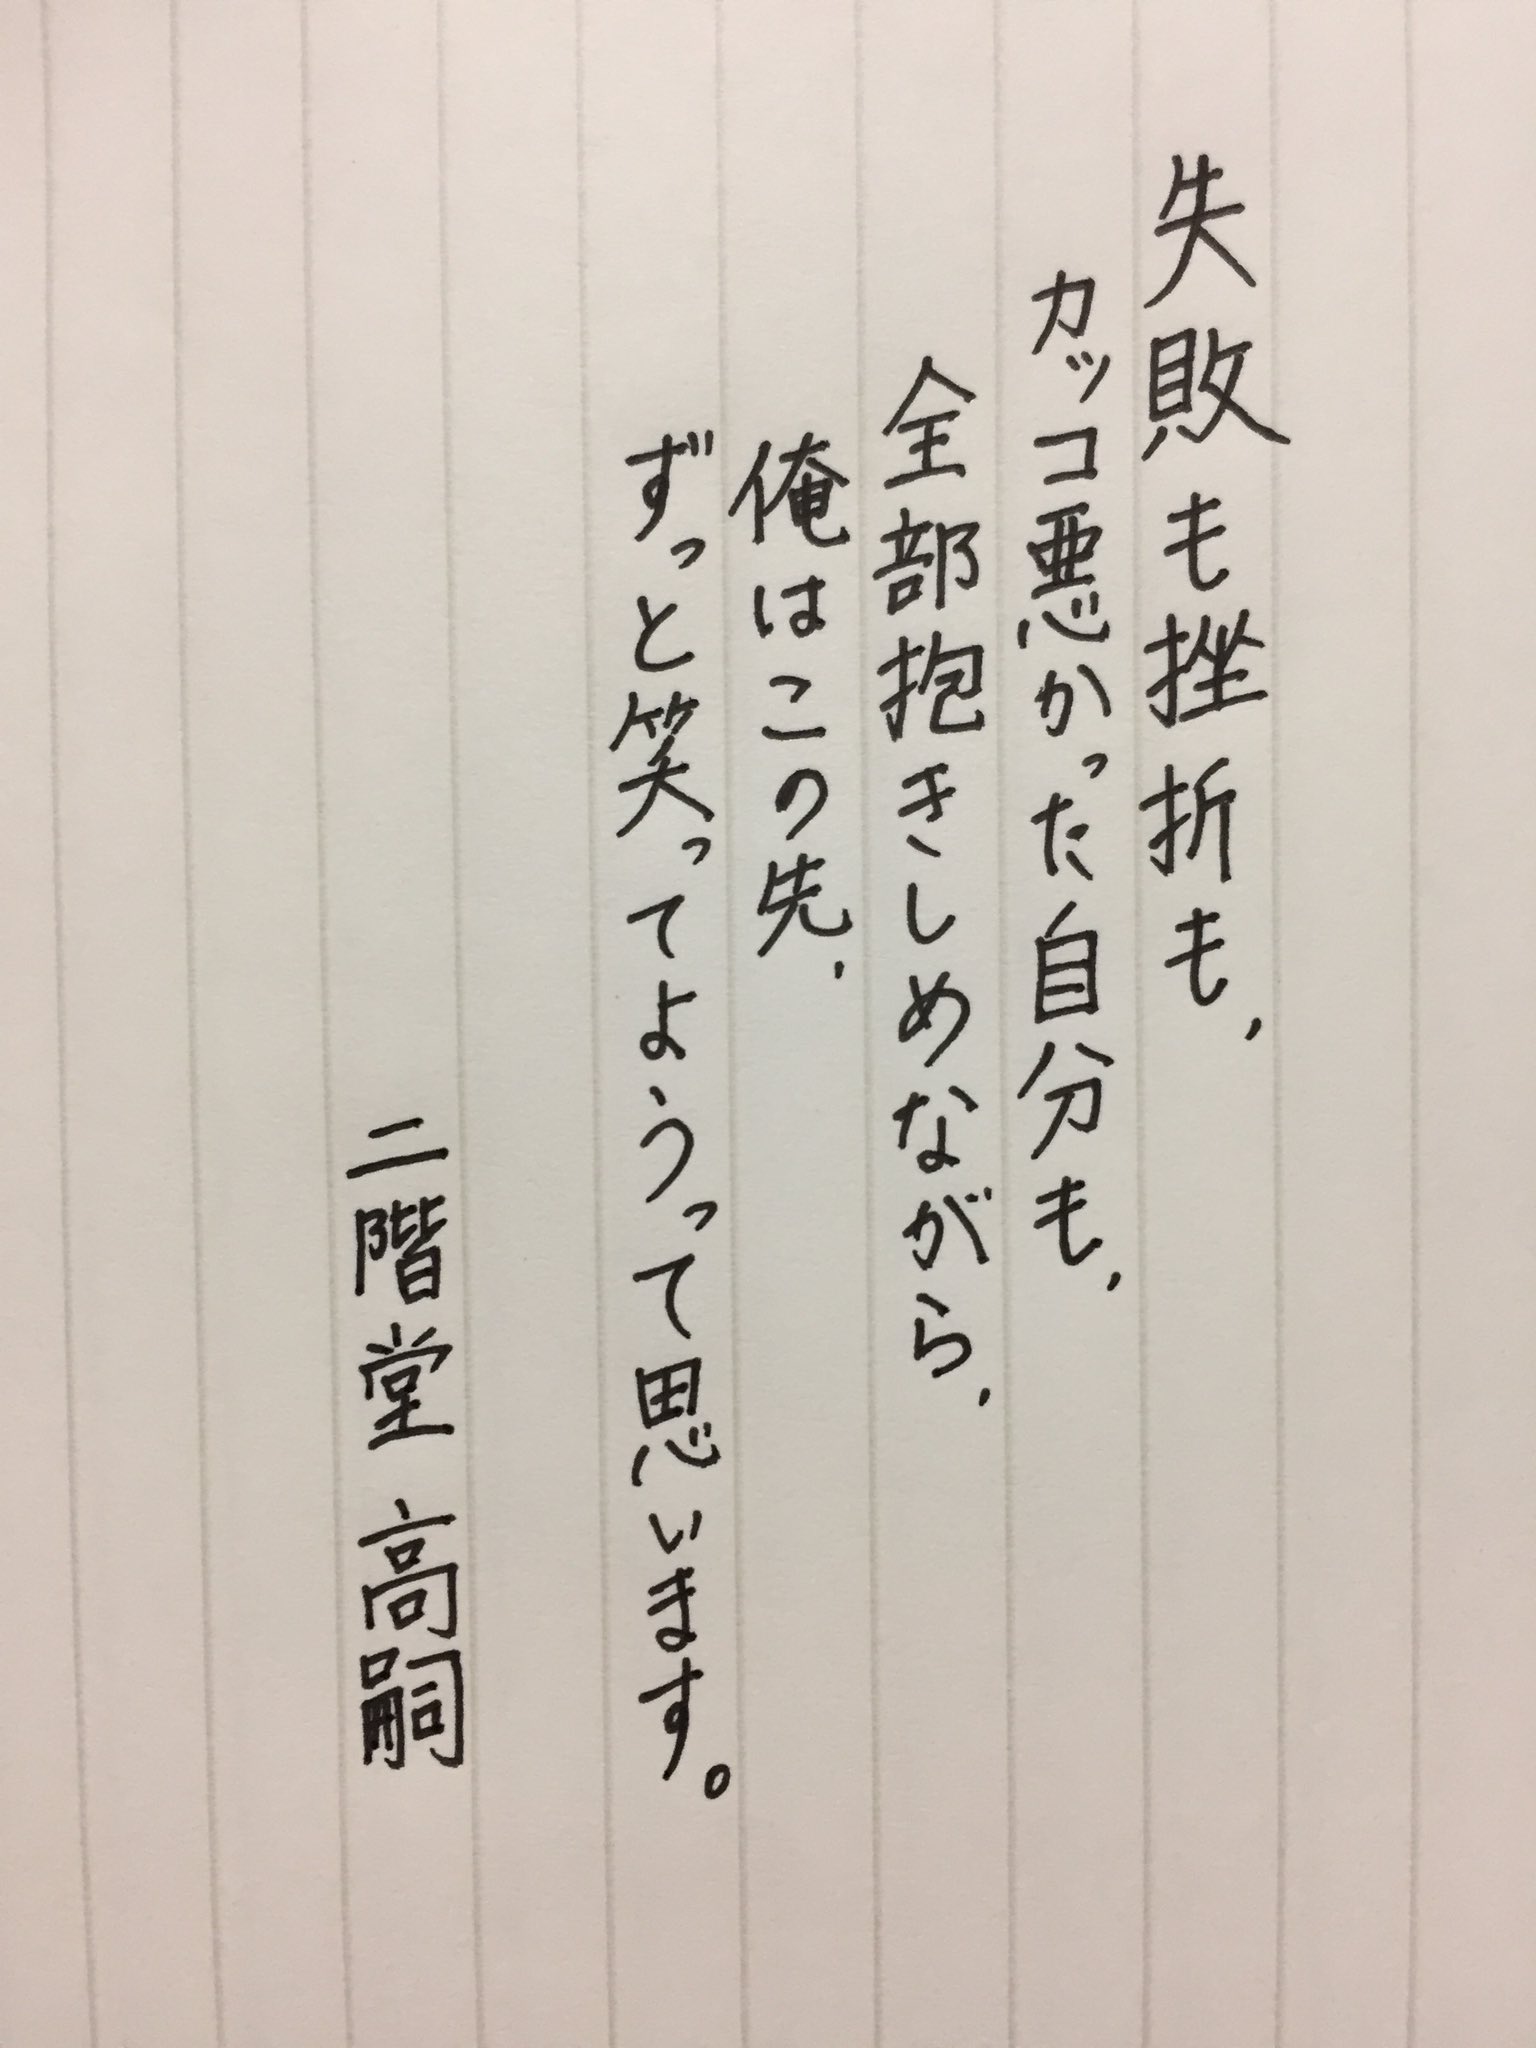 失敗も挫折も、
カッコ悪かった自分も、
全部抱きしめながら、
俺はこの先、
ずっと笑ってようって思います。
二階堂 高嗣